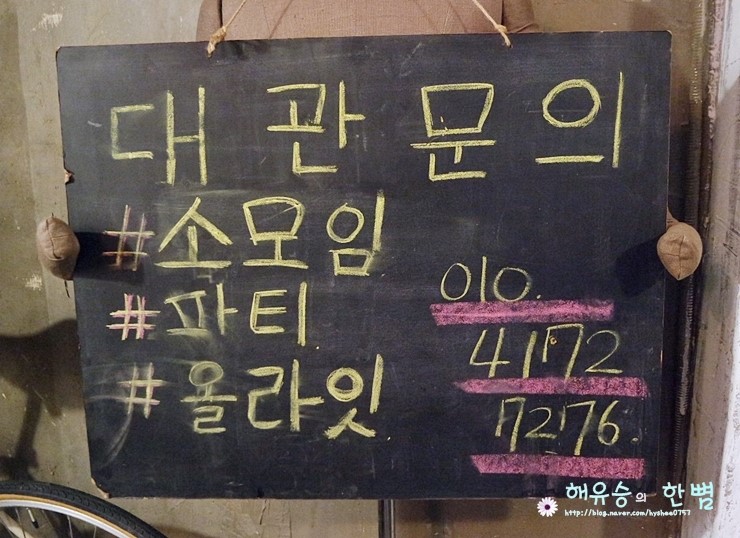 대관문의
#소모임
#파티
#올라잇
010.
4172
7276.
해유승의 한뼘
http://blog.naver.com/hyshee0757